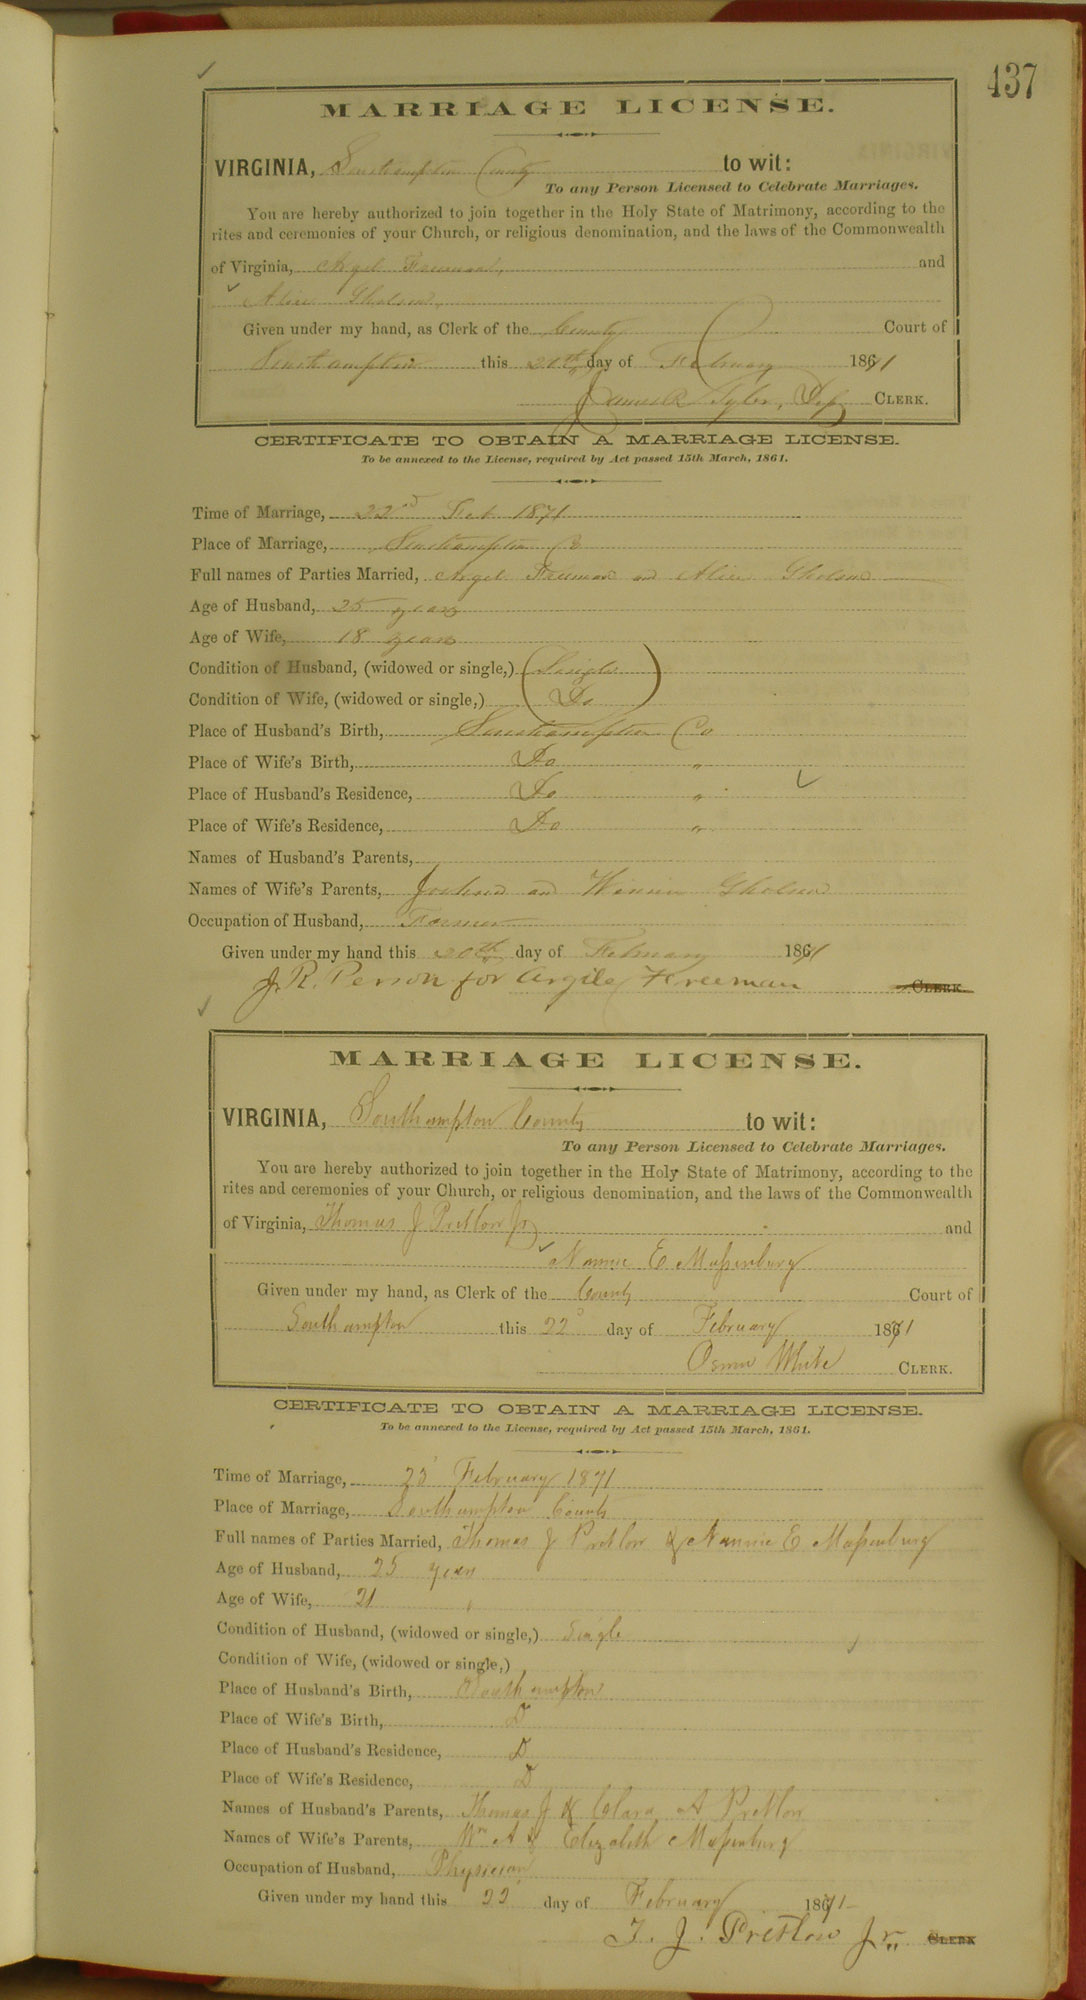 437
MARRIAGE LICENSE.
VIRGINIA, Southampton County to wit:
To any Person Licensed to Celebrate Marriages.
You are hereby authorized to join together in the Holy State of Matrimony, according to the
rites and ceremonies of your Church, or religious denomination, and the laws of the Commonwealth
of Virginia, Argel Freeman, and
Alice Gholson,
Given under my hand, as Clerk of the County Court of
Southampton this 20th day of February 1871
James R Tyler, Dep CLERK.
CERTIFICATE TO OBTAIN A MARRIAGE LICENSE.
To be annexed to the License, required by Act passed 15th March, 1861.
Time of Marriage, 22d Feb 1871
Place of Marriage, Southampton Co
Full names of Parties Married, Argel Freeman and Alice Gholson
Age of Husband, 25 years
Age of Wife, 18 years
Condition of Husband, (widowed or single,) Single
Condition of Wife, (widowed or single,) Do
Place of Husband's Birth, Southampton Co
Place of Wife's Birth, Do "
Place of Husband's Residence, Do "
Place of Wife's Residence, Do "
Names of Husband's Parents,
Names of Wife's Parents, and Winnie Gholson
Occupation of Husband, Farmer
Given under my hand this 20th day of February 1871
J. R. Person for Argile Freeman CLERK.
MARRIAGE LICENSE.
VIRGINIA, Southampton County to wit:
To any Person Licensed to Celebrate Marriages.
You are hereby authorized to join together in the Holy State of Matrimony, according to the
rites and ceremonies of your Church, or religious denomination, and the laws of the Commonwealth
of Virginia, Thomas J Pretlow Jr and
Nannie E Massenburg
Given under my hand, as Clerk of the County Court of
Southampton this 22d day of February 1871
White CLERK.
CERTIFICATE TO OBTAIN A MARRIAGE LICENSE.
To be annexed to the License, required by Act passed 15th March, 1861.
Time of Marriage, 23 February 1871
Place of Marriage, Southampton County
Full names of Parties Married, Thomas J Pretlow & Nannie E Massenburg
Age of Husband, 25 years
Age of Wife, 21 "
Condition of Husband, (widowed or single,) Single
Condition of Wife, (widowed or single,)
Place of Husband's Birth, Southampton
Place of Wife's Birth, D
Place of Husband's Residence, D
Place of Wife's Residence, D
Names of Husband's Parents, Thomas J & Clara A Pretlow
Names of Wife's Parents, Wm A & Elizabeth Massenburg
Occupation of Husband, Physician
Given under my hand this 22 day of February 1871
T. J. Pretlow Jr. CLERK